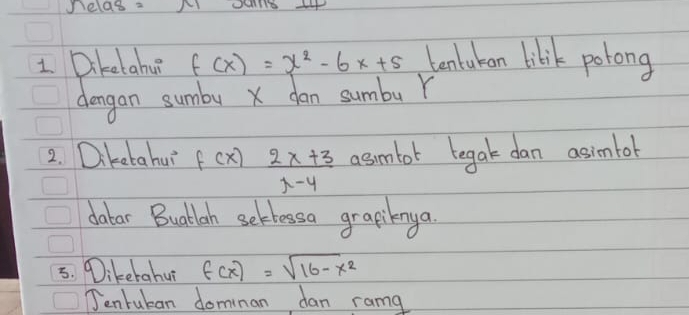 Kelas = XI Sains III
1 Diketahui f (x) = x² - 6x + 5 tentukan titik potong
dengan sumbu X dan sumbu Y
2. Diketahui f (x) 2x+3 asimtot tegak dan asimtot
x-4
datar Buatlah sektessa grafiknya.
3. Diketahui f(x) = √16-x²
Tentukan dominan dan rang